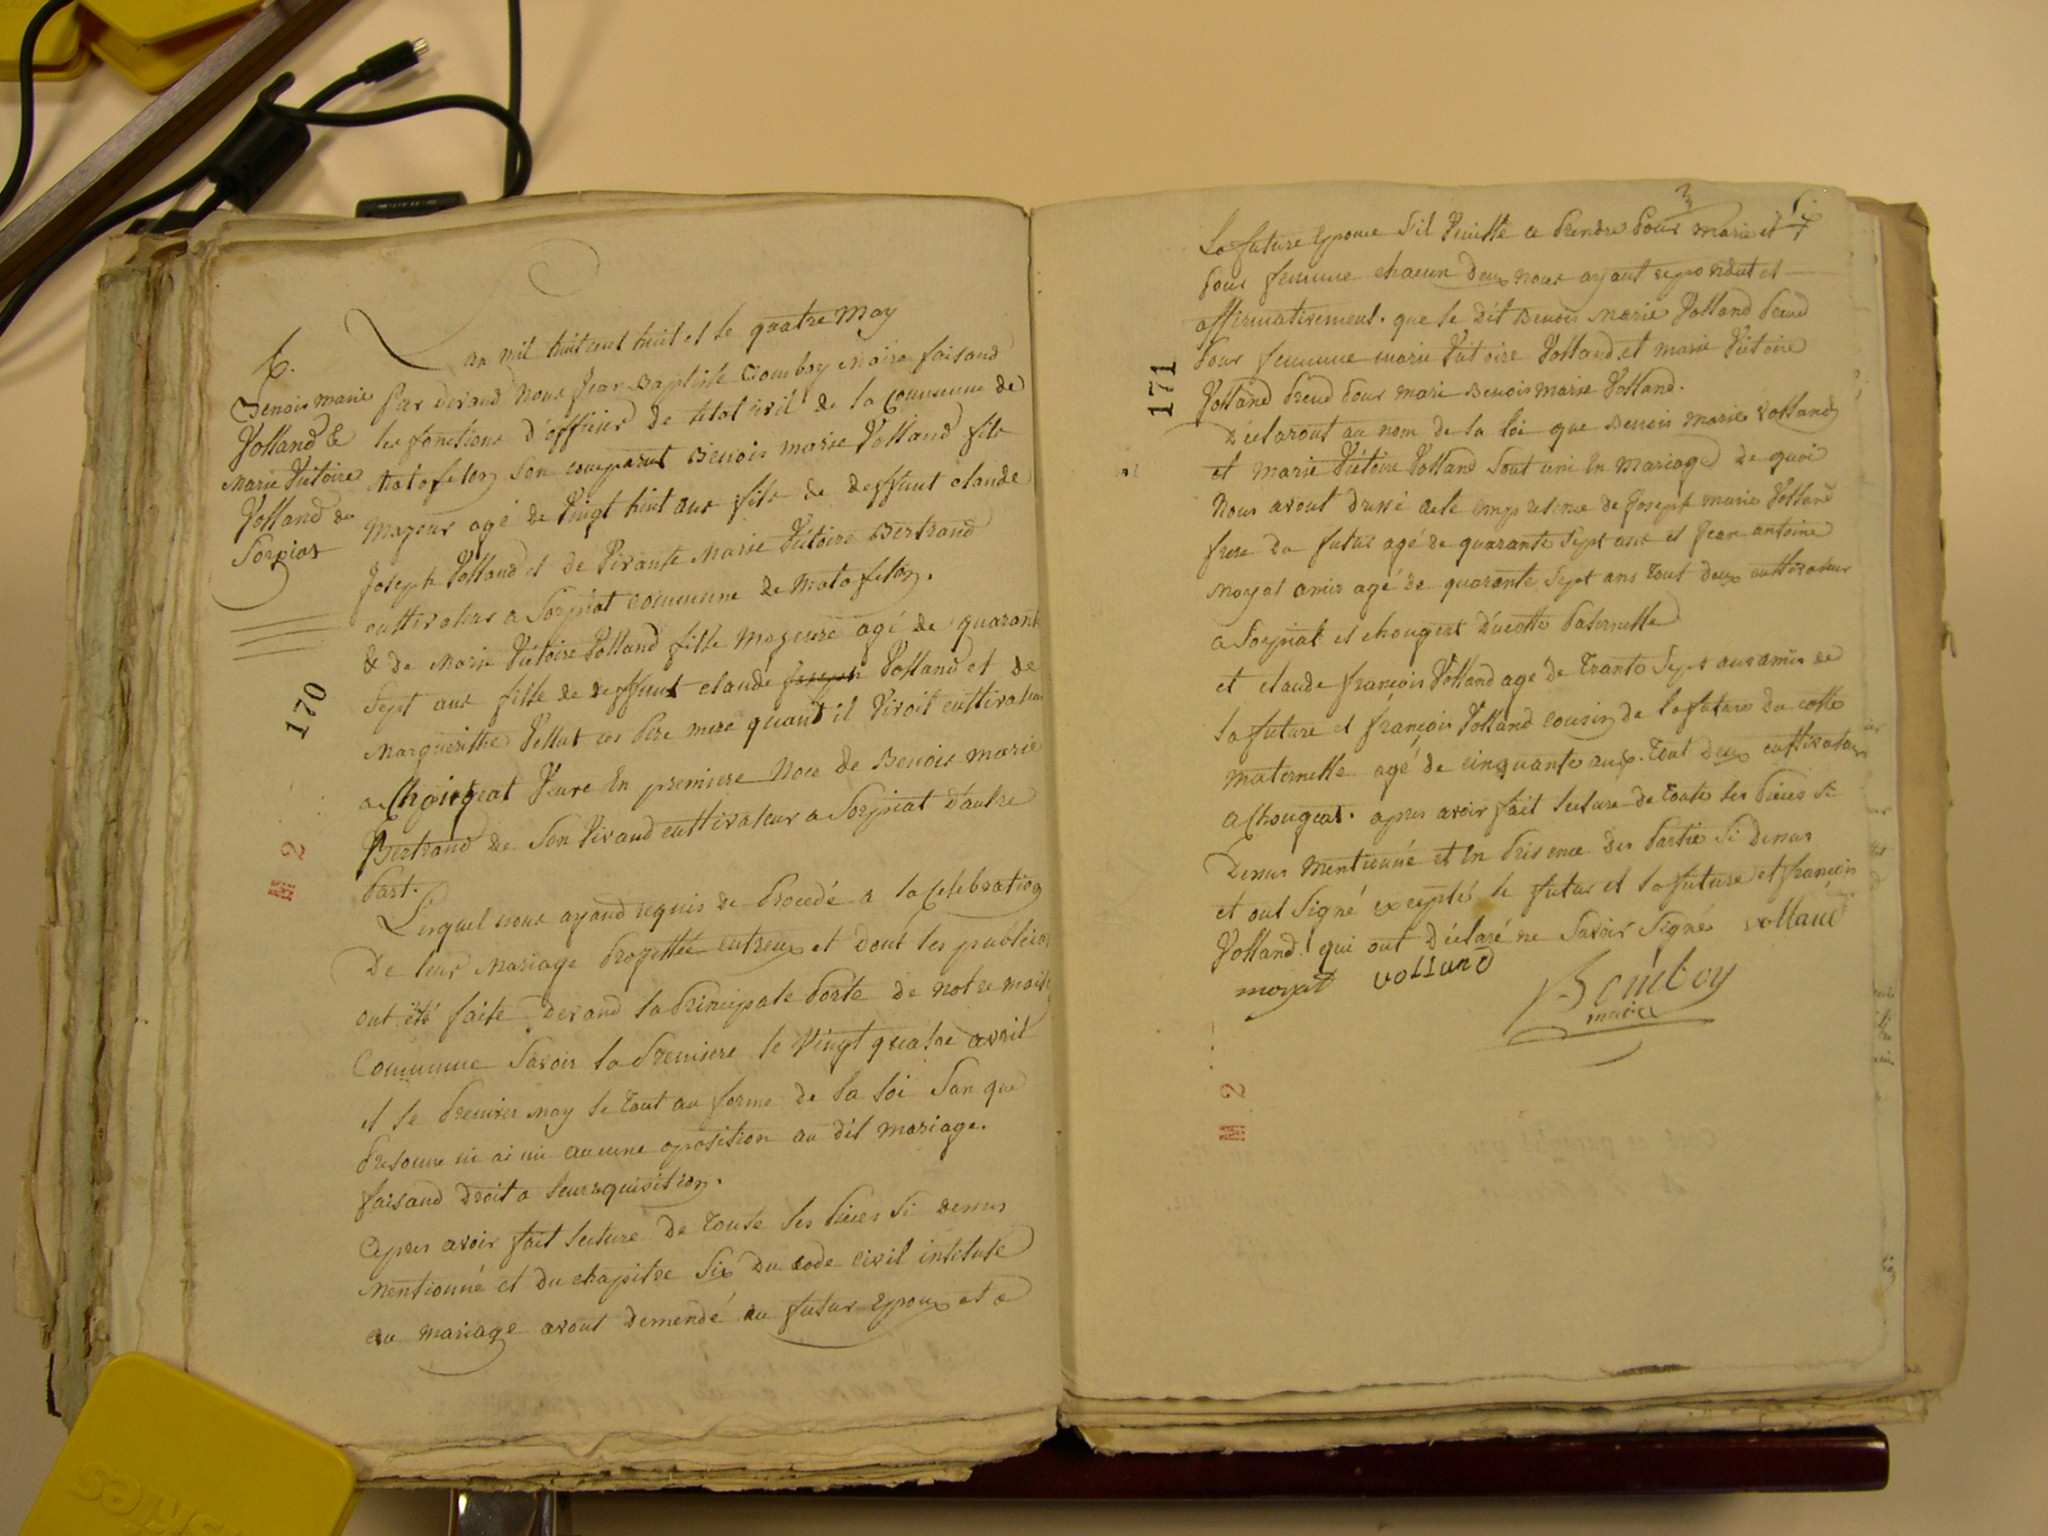 an mil huit cent huit et le quatre May
6.
Benois marie
Volland &
Marie Victoire
Volland de
Sorpiat
par devand nous Jean Baptiste Bomboy maire faisand
les fonctions d'officier de l'etat civil de la Commune de
Matafelon son comparut Benois marie Volland fils
Majeur agé de Vingt huit ans fils de deffunt claude
Joseph Volland et de Vivante Marie Victoire Bertrand
cultivateur a Sorpiat commune de Matafelon.
& de Marie Victoire Volland fille Majeure agé de quarante
Sept ans fille de deffunt claude Joseph Volland et de
Marguerithe Vellut ces pere mere quand il Vivoit cultivateur
a Chougeat Veuve En premiere Noce de Benois marie
Bertrand de Son Vivand cultivateur a Sorpiat d'autre
part.
Lesquel nous ayand requis de Procedé a la Celebration
De leur Mariage Projettée entreux et dont les publication
ont été faite devand la Principale Porte de notre maison
Commune Savoir la Premiere le Vingt quatre avril
et le Premier May le Tout au forme de la loi San que
Presonne ni ai mi aucune oposition au dit mariage.
faisand Droit a leur requisition.
Apres avoir fait lecture de Toute les Pieces Si dessus
Mentionné et du chapitre Six Du Code Civil intitulé
du mariage avont demendé au futur Epoux et a
170
M 2
La future Epouse S'il Veuille a Prendre Pour Marie et
Pour femme chacun Deux nous ayant repondut et
affirmativement. que le Dit Benois Marie Volland Prend
Pour femme marie Victoire Volland et marie Victoire
Volland Prend Pour mari Benois Marie Volland.
Déclaront au nom de la loi que Benois marie Volland
et Marie Victoire Volland Sont uni En Mariage De quoi
Nous avont Dressé acte en presence de Joseph marie Volland
frere Du futur agé de quarante Sept ans et Jean antoine
Moyat amis agé de quarante Sept ans Tout Deux cultivateur
a Sorpiat et chougeat D'ucotté Paternelle
et claude françois Volland agé de Trante Sept ans amis de
la future et françois Volland cousin de la future du cotté
maternelle agé de cinquante ans. Tout Deux cultivateur
a Chougeat. apres avoir fait lecture de Toute les Pieces Si
Dessus Mentionné et En Presence Des Partie Si Dessus
et ont Signé exceptés le futur et la future et françois
Volland qui ont Déclaré ne Savoir Signé volland
moyat volland
Bomboy
maire
171
M 2